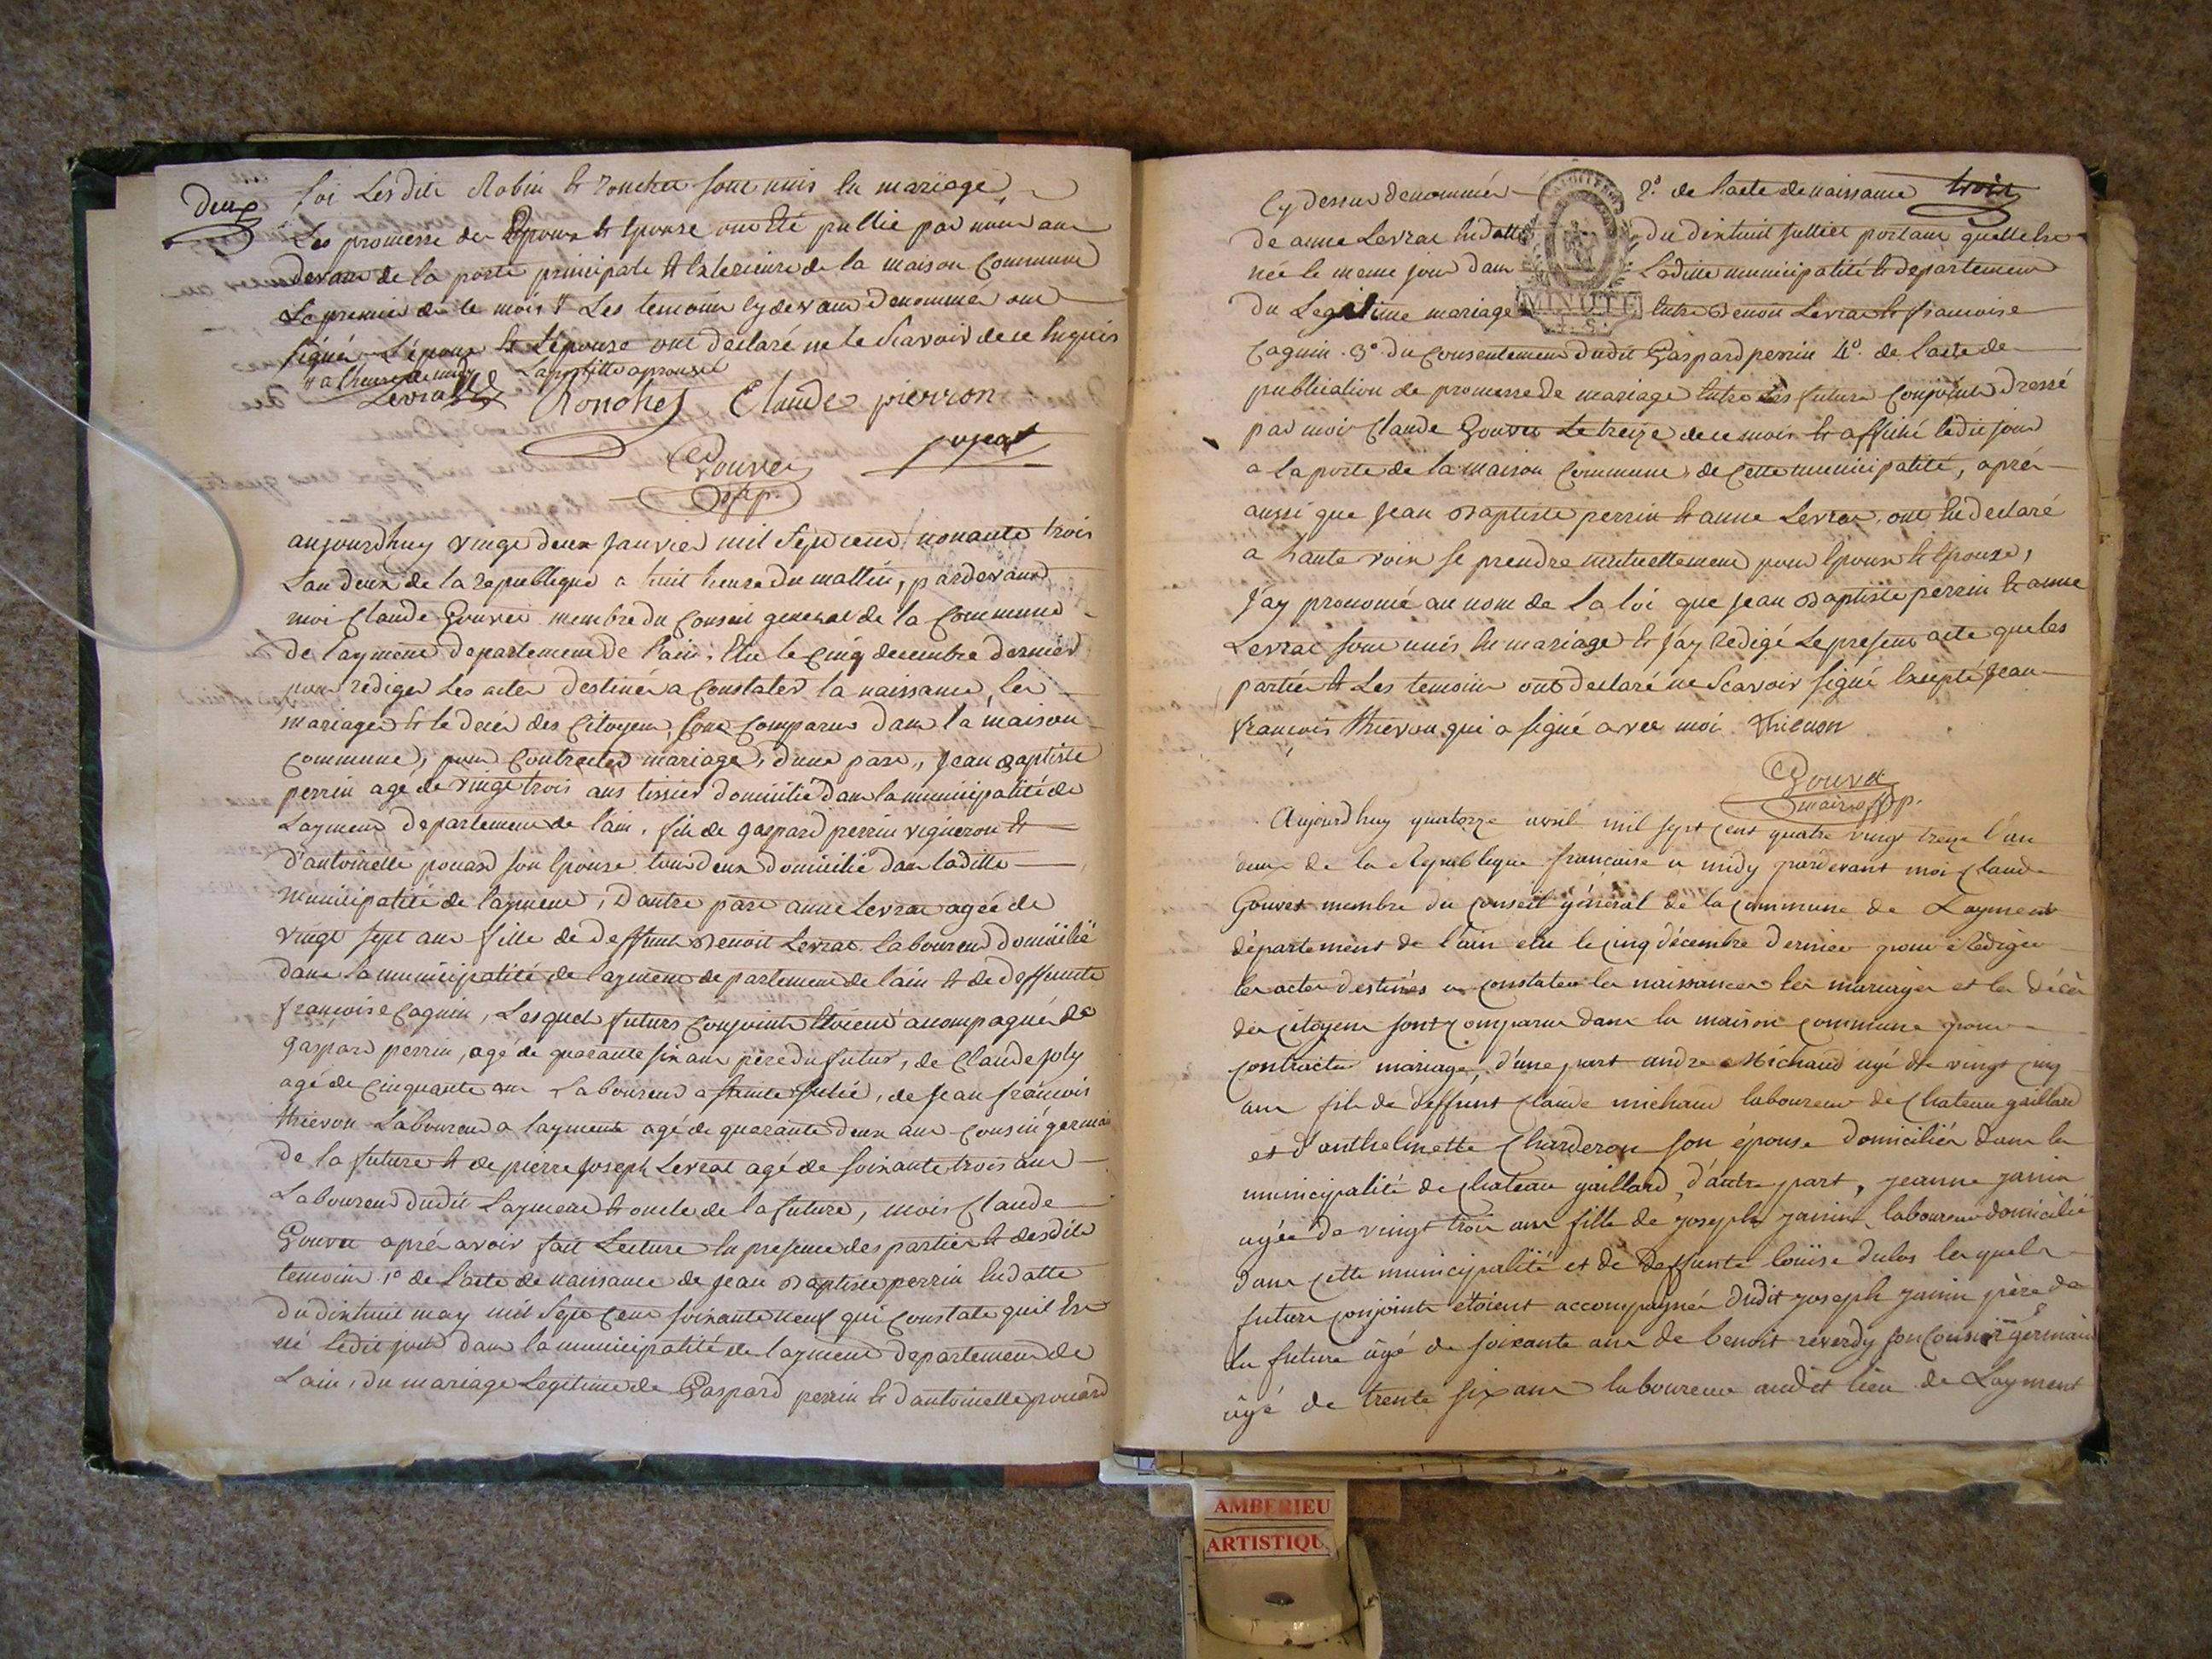 Deux
loi Lesdits Robin et ronchet sont unis en mariage
Les promesse des Epoux et Epouse ont été publié par nous au
devant de la porte principale et exterieure de la maison Commune
Le premier de ce mois # Les temoins cy devant denommé ont
signé L'époux et L'épouse ont declaré ne le Scavoir de ce enquis
# a l'heure de midy Lapostille aprouvée
Levrat Ronchet Claude pierron
Gouvet
off. p.
aujourdhuy vingt deux Janvier mil Sept cent nonante trois
Lan deux de la republique a huit heure du mattin, pardevant
moi Claude Gouvet membre du Conseil general de la Commune
de layment departement de l'ain, Elu le Cinq decembre dernier
pour rediger Les actes destinés a Constater la naissance, les
mariages et le decés des Citoyens, Sont Comparus dans la maison
Commune, pour Contracter mariage, d'une part, Jean Baptiste
perrin agé de vingt trois ans tissier domicilié dans la municipalité de
Layment departement de l'ain, fils de gaspard perrin vigneron et
d'antoinette pouard son Epouse tous deux domicilié dans laditte
municipalité de layment, D'autre part anne Levrat agée de
vingt sept ans fille de deffunt Benoit Levrat laboureur domicilié
dans la municipalité de layment departement de l'ain et de deffunte
françoise Cagnin, Lesquels futurs Conjoints Etoient acompagné de
gaspard perrin, agé de quarante six ans pere du futur, de Claude joly
agé de Cinquante ans Laboureur a Sainte Julie, de Jean françois
thievon Laboureur a layment agé de quarante deux ans Cousin germain
de la future et de pierre Joseph Levrat agé de soixante trois ans
Laboureur dudit Layment et oncle de la future, mois Claude
Gouvet aprés avoir fait Lecture En presence des parties et desdits
temoins 1º de L'acte de naissance de Jean Baptiste perrin En datte
du dixhuit may mil Sept Cent soixante neuf qui Constate quil Est
né ledit jour dans la municipalité de layment departement de
Lain, du mariage Legitime de Gaspard perrin et d'antoinette pouard
Cy dessus denommés 2º. de L'acte de naissance trois
de anne Levrat En datte du dixhuit Juillet portant quelle Est
née le meme jour dans Laditte municipalité et departement
du Legitime mariage Entre Benoit Levrat et francoise
MINUTE
Cagnin. 3º. du Consentement dudit Gaspard perrin 4º. de L'acte de
publication de promesse de mariage Entre Les futurs Conjoints dressé
par moi Claude Gouvet Le treize de ce mois et affiché ledit jour
a la porte de la maison Commune de Cette municipalité, aprés
aussi que Jean Baptiste perrin et anne Levrat, ont Eu declaré
a haute voix se prendre mutuellement pour Epoux et Epouse,
J'ay prononcé au nom de la loi que Jean Baptiste perrin et anne
Levrat sont unis En mariage et J'ay redigé Le present acte que les
parties et Les temoins ont declaré ne Scavoir signé Excepté Jean
francois thievon qui a signé avec moi Thievon
Gouvet
maire off p.
Aujourd'huy quatorze avril mil sept cent quatre vingt treize l'an
deux de la République françoise a midy pardevant moi Claude
Gouvet membre du conseil général de la commune de Layment
département de l'ain elu le cinq décembre dernier pour rédiger
les actes destinés a constater les naissances les mariages et les décès
des citoyens sont comparus dans la maison commune pour
contracter mariage, d'une part andre Michaud agé de vingt cinq
ans fils de deffunt claude michaud laboureur de Chateau gaillard
et d'anthelmette Charderon son épouse domiciliés dans la
municipalité de chateau gaillard, d'autre part, jeanne janin
agée de vingt trois ans fille de joseph janin laboureur domicilié
dans cette municipalité et de deffunte louise dulos lesquels
futurs conjoints etoient accompagnés dudit joseph janin père de
la future agé de soixante ans de benoit reverdy son cousin germain
agé de trente six ans laboureur audit lieu de Layment
AMBERIEU
ARTISTIQU